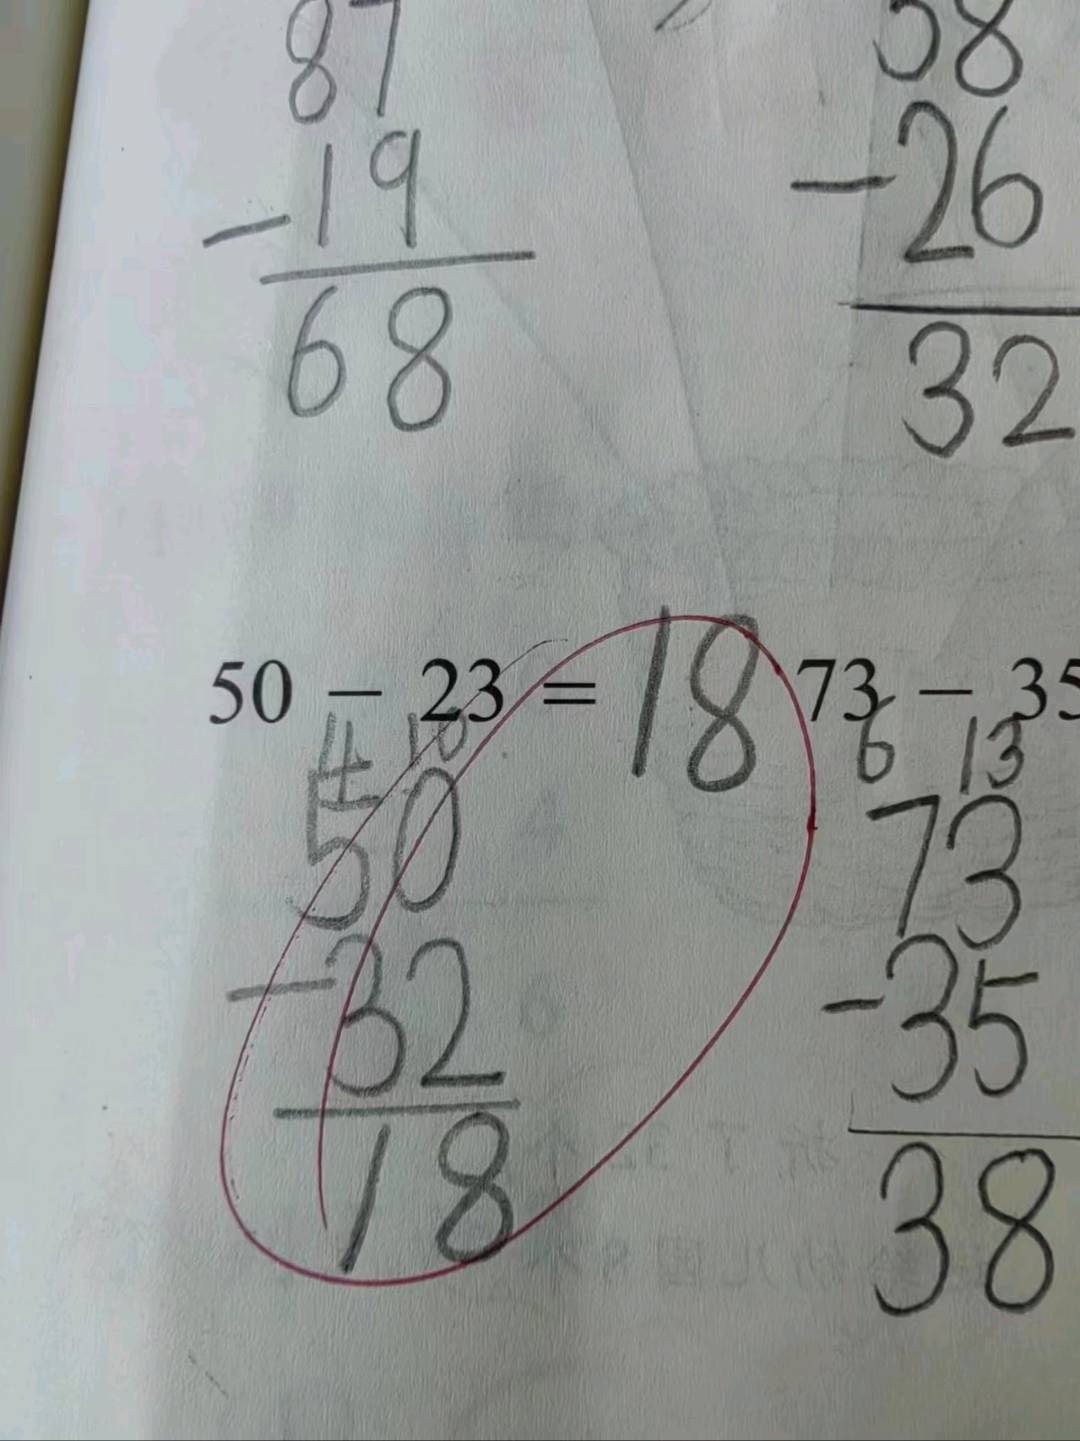 87
- 19
68
58
- 26
32
50 - 23 = 18
4 10
50
- 32
18
73 - 35
6 13
73
- 35
38